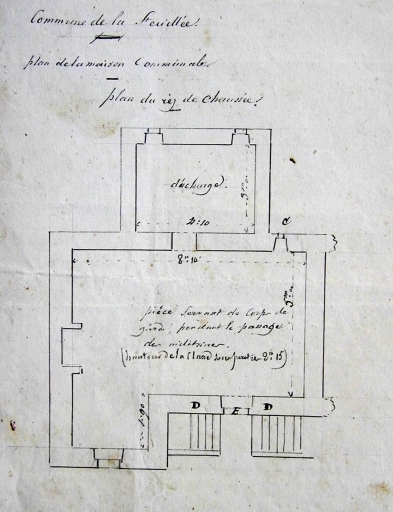 Commune de la Feuillée.
plan de la maison Communale.
plan du rez de chaussée.
décharge.
4m10
C
8m10
pièce servant de Corp de
garde, pendant le passage
des militaires.
(hauteur de la 2m15)
D E D